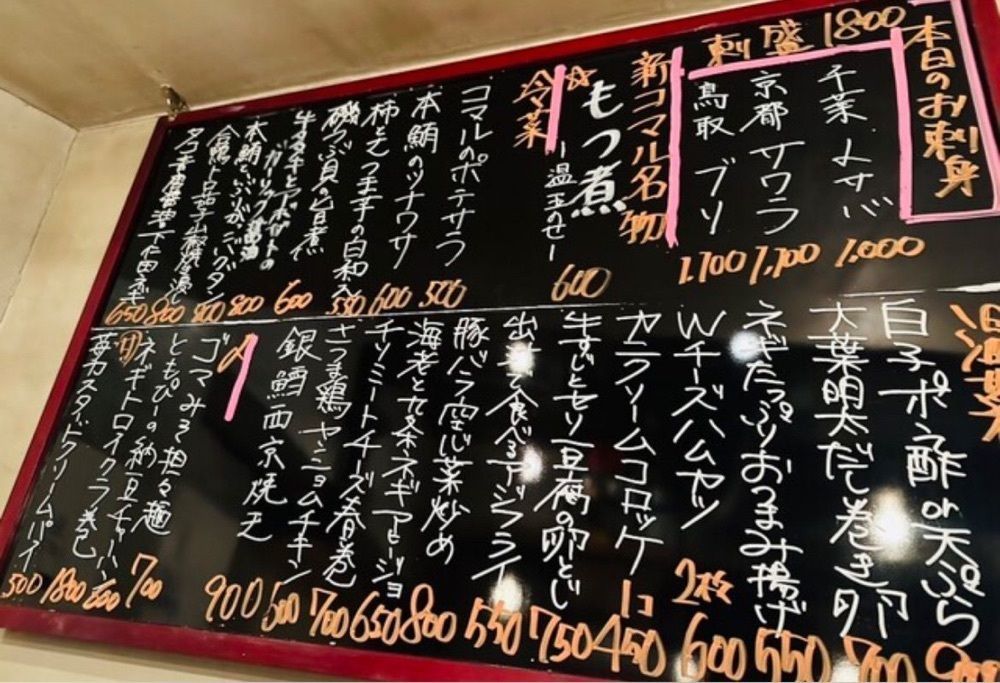 本日のお刺身
刺盛 1800
千葉 〆サバ 1.000
京都 サワラ 1,100
鳥取 ブリ 1.100
新コマル名物
☆もつ煮
ー温玉のせー 600
冷菜
コマルのポテサラ 500
本鮪のツナワサ 600
柿とさつま芋の白和え 550
磯つぶ貝の旨煮 600
牛タタキと
ガーリック醤油 800
本鮪と
合鴨トロ茄子山椒煮浸し 800
下仁田ネギ 650
温菜
白子ポン酢or天ぷら
大葉明太だし巻き卵 700
ネギたっぷりおつまみ揚げ 550
Wチーズハムカツ 600
カニクリームコロッケ 1コ 450
牛すじとセリ豆腐の卵とじ 750
出汁で食べるアジフライ 550
豚バラ空心菜炒め 800
海老と九条ネギアヒージョ 650
チリミートチーズ春巻 700
さつま鶏ヤンニョムチキン 500
銀鱈西京焼き 900
〆
ゴマみそ担々麺 700
ともぴーの納豆チャーハン
ネギトロイクラ巻 1800
苺カスタードクリームパイ 500